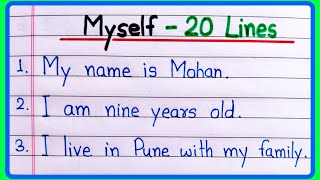 Myself - 20 Lines
1. My name is Mohan.
2. I am nine years old.
3. I live in Pune with my family.